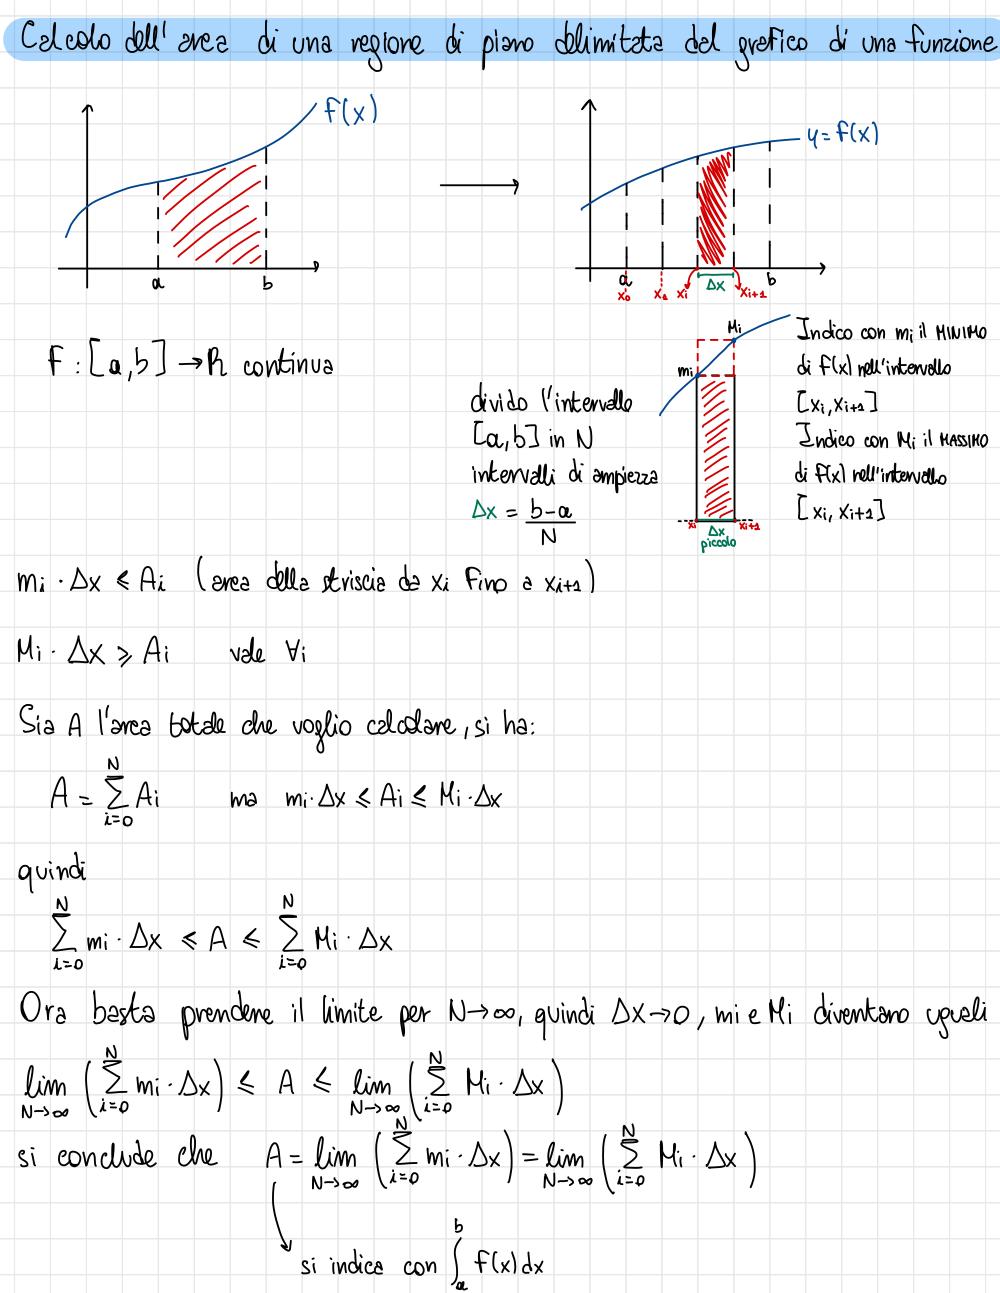 Calcolo dell' area di una regione di piano delimitata dal grafico di una funzione
f(x)
a
b
y=f(x)
a
b
x₀
x₁
xᵢ
Δx
xᵢ₊₁
f : [a,b] → R continua
divido l'intervallo
[a,b] in N
intervalli di ampiezza
Δx = (b-a)/N
Mᵢ
mᵢ
xᵢ
Δx
piccolo
xᵢ₊₁
Indico con mᵢ il MINIMO
di f(x) nell'intervallo
[xᵢ,xᵢ₊₁]
Indico con Mᵢ il MASSIMO
di f(x) nell'intervallo
[xᵢ, xᵢ₊₁]
mᵢ · Δx ≤ Aᵢ (area della striscia da xᵢ fino a xᵢ₊₁)
Mᵢ · Δx ≥ Aᵢ vale ∀i
Sia A l'area totale che voglio calcolare, si ha:
A = ∑_{i=0}^{N} Aᵢ ma mᵢ·Δx ≤ Aᵢ ≤ Mᵢ·Δx
quindi
∑_{i=0}^{N} mᵢ · Δx ≤ A ≤ ∑_{i=0}^{N} Mᵢ · Δx
Ora basta prendere il limite per N→∞, quindi Δx→0, mᵢ e Mᵢ diventano uguali
lim_{N→∞} (∑_{i=0}^{N} mᵢ · Δx) ≤ A ≤ lim_{N→∞} (∑_{i=0}^{N} Mᵢ · Δx)
si conclude che A = lim_{N→∞} (∑_{i=0}^{N} mᵢ · Δx) = lim_{N→∞} (∑_{i=0}^{N} Mᵢ · Δx)
si indica con ∫_{a}^{b} f(x) dx